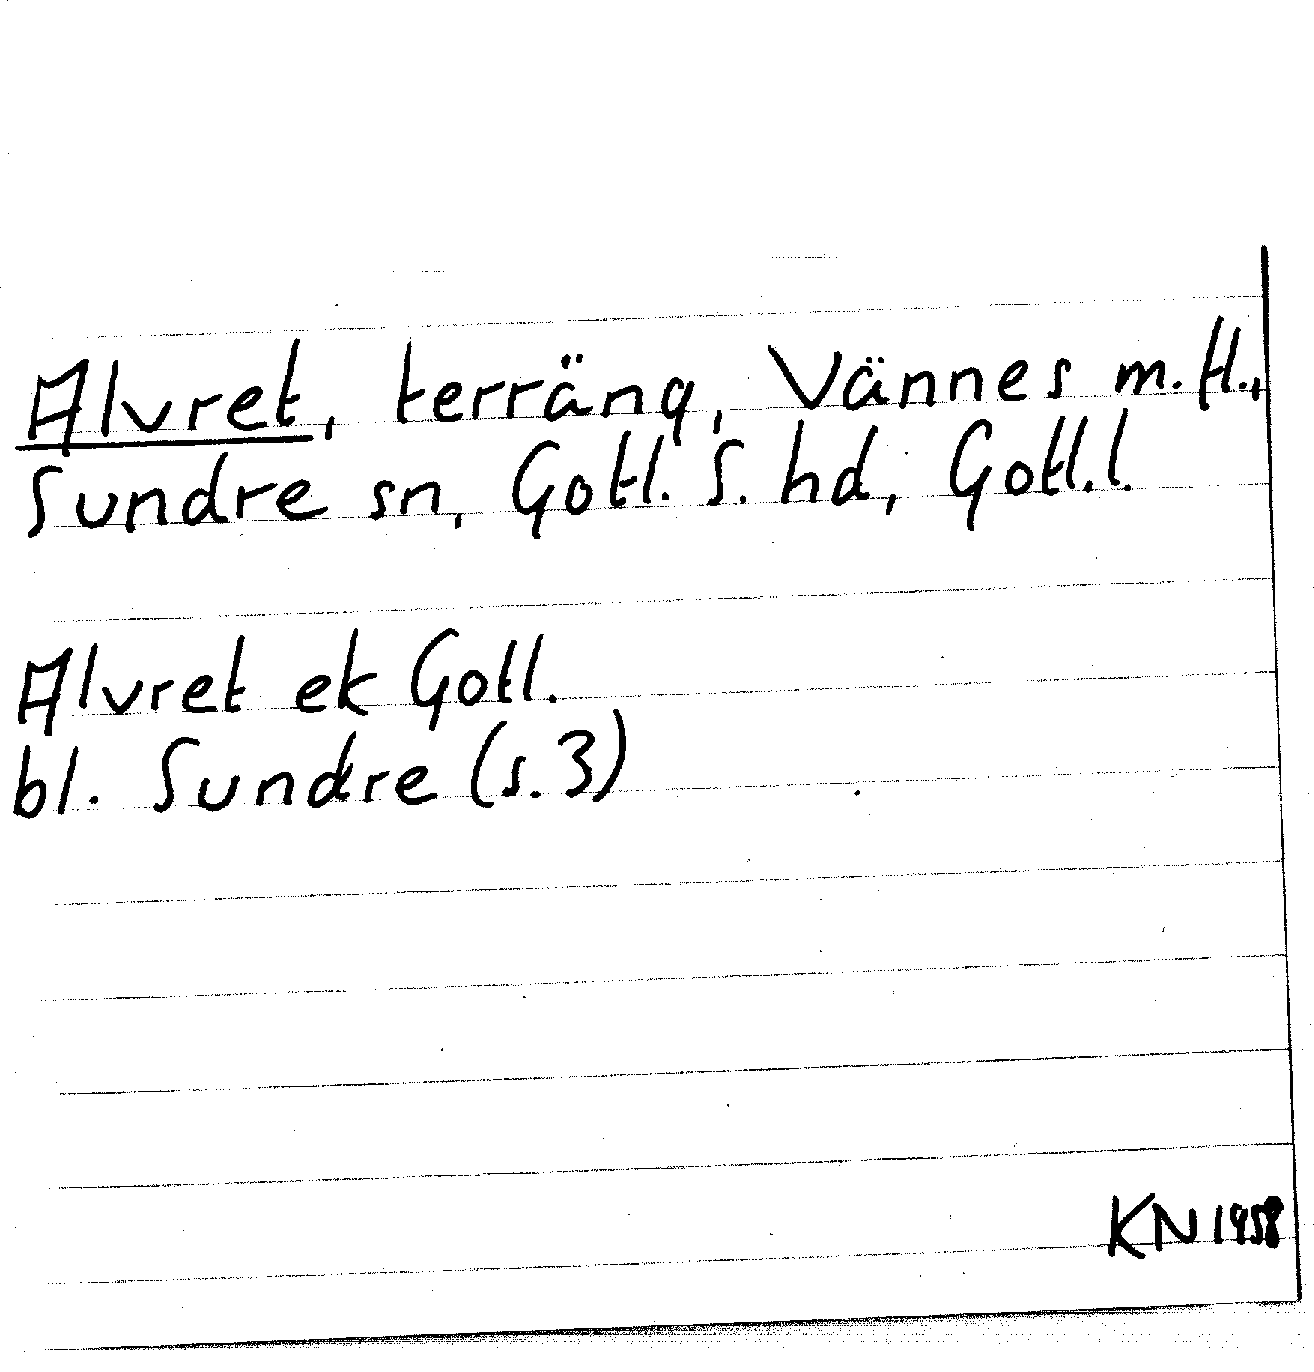 Alvret, terräng, Vännes m.fl.,
Sundre sn, Gotl. S. hd, Gotl.l.
Alvret ek Gotl.
bl. Sundre (s.3)
KN 1958